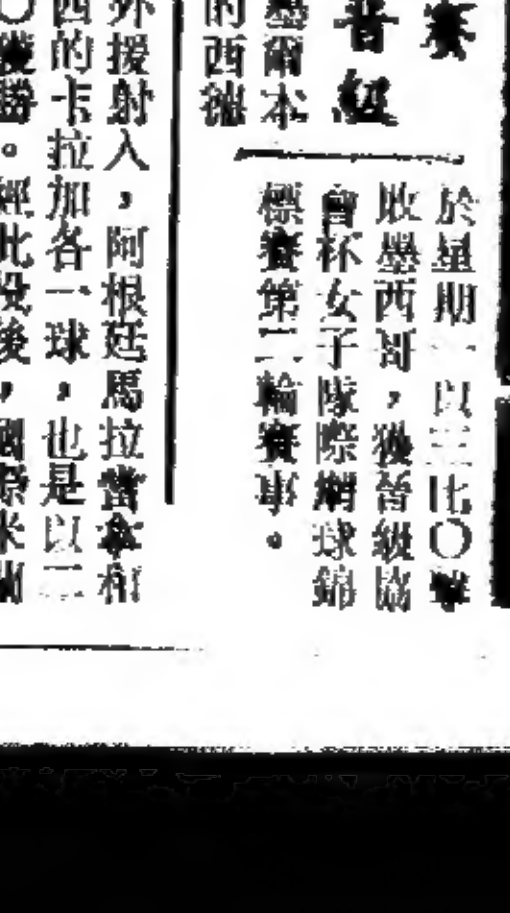 賽
晉級
於星期一以三比〇擊
敗墨西哥，獲晉級協
會杯女子隊際網球錦
標賽第二輪賽事。
墨爾本
的西德
外援射入，阿根廷馬拉當拿和
西的卡拉加各一球，也是以二
〇獲勝。經此役後，國際米蘭